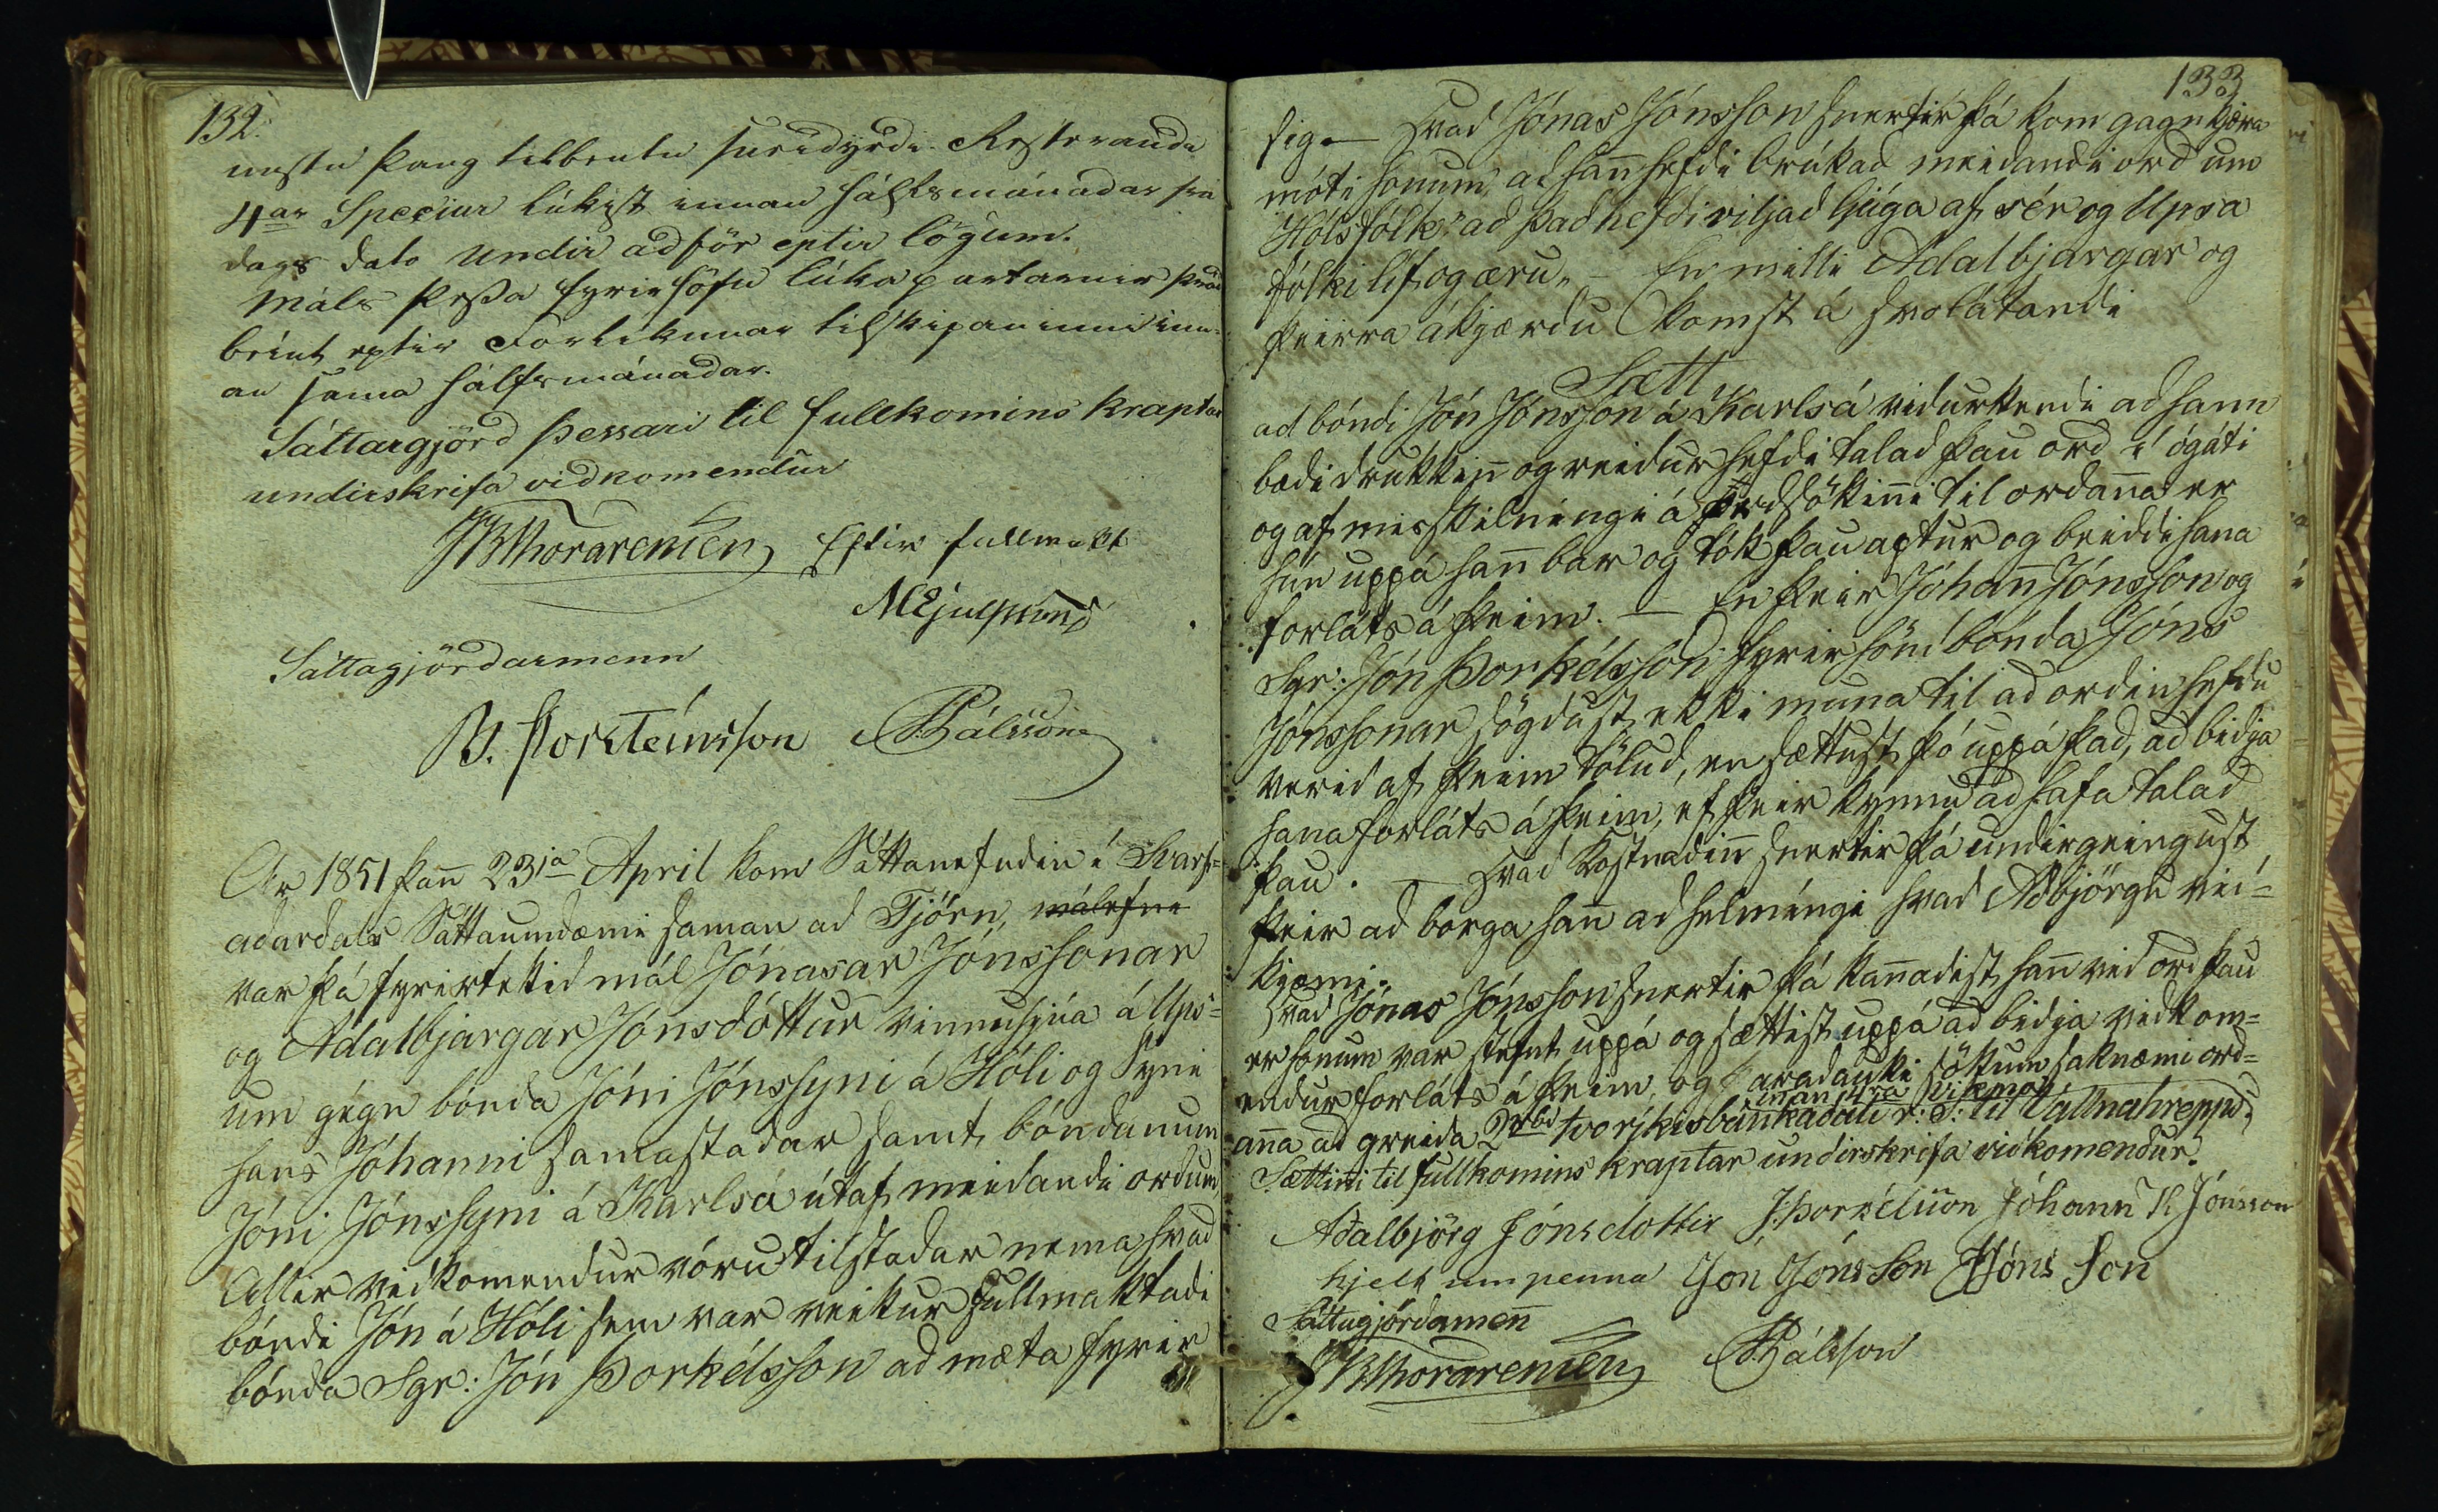 132.
unstu þang tilbentu sneidyrdi. Resterandi
4ar Speciur lúkist innan hálfsmánadar frá
dags dato undir adför eptir lögum.
Máls þessa fyrirhöfn lúka partarnir þvad
beint eptir Forlíkunar tilskipaninni inn-
an sama hálfsmánadar.
Sáttargjörd þessari til fullkomins kraptar
undirskrifa vidkomendur
JBThorarensen Eftir fullmakt
Sáttagjördarmenn
B. Þorsteinsson Pálsson
Ár 1851 þan̄ 23ja Apríl kom Sáttanefndin í Svarf=
adardals Sáttaumdæmi saman ad Tjörn, málefni
var þá fyrirtekid mál Jónasar Jónssonar
og Adalbjargar Jónsdóttur vinnuhjúa á Ups=
um gégn bónda Jóni Jónssyni á Hóli og Syni
hans Jóhanni samastadar samt bóndanum
Jóni Jónssyni á Karlsá útaf meidandi ordum,
Allir vidkomendur vóru tilstadar nema hvad
bóndi Jón á Hóli sem var veikur Fullmaktadi
bónda Sgr: Jón Þorkélsson ad mæta fyrir
133
sig. — Hvad Jónas Jónsson snertir þá kom gagnkjæra
móti honum, ad han̄ hefdi brúkad meidandi ord um
Hólsfólk: ad þad hefdi viljad ljúga af sér og Upsa
fólki líf og æru„ — En milli Adalbjargar og
þeirra ákjærdu komst á svolátandi
Sætt
ad bóndi Jón Jónsson á Karlsá vidurkendi ad hann
bædi drukkin̄ og reidur hefdi talad þau ord í ógáti
og af misskilníngi á ordsökin̄i til ordan̄a er
hún uppá han̄ bar og tók þau aptur og beiddi hana
forláts á þeim. — En þeir Jóhan̄ Jónsson og
Sgr: Jón Þorkélsson fyrir hönd bónda Jóns
Jónssonar sögdust ekki muna til ad ordin hefdu
verid af þeim tölud, en sættust þó uppá þad, ad bidja
hana forláts á þeim, ef þeir kynnu ad hafa talad
þau. — Hvad kostnadin̄ snertir þá undirgeingust
þeir ad borga han̄ ad helmíngi hvad Adbjörgu vid=
kjæmi.
Hvad Jónas Jónsson snertir þá kan̄adist han̄ vid ord þau
er honum var stefnt uppá og sættist uppá ad bidja vidkom=
endur forláts á þeim, og þaradauki sökum saknæmi ord=
innan fra vikna
an̄a ad greida 2 rbd tvo ríkisbánkadali r: S: til Vallnahrepps.
Sættini til fullkomins kraptar undirskrifa vidkomendur.
Adalbjörg Jónsdottir J. Þorkélsson Jóhann K Jónsson
hjelt um penna Jón Jónsson JJóns Son
Sáttagjördamen̄
JBThorarensen Pálsson